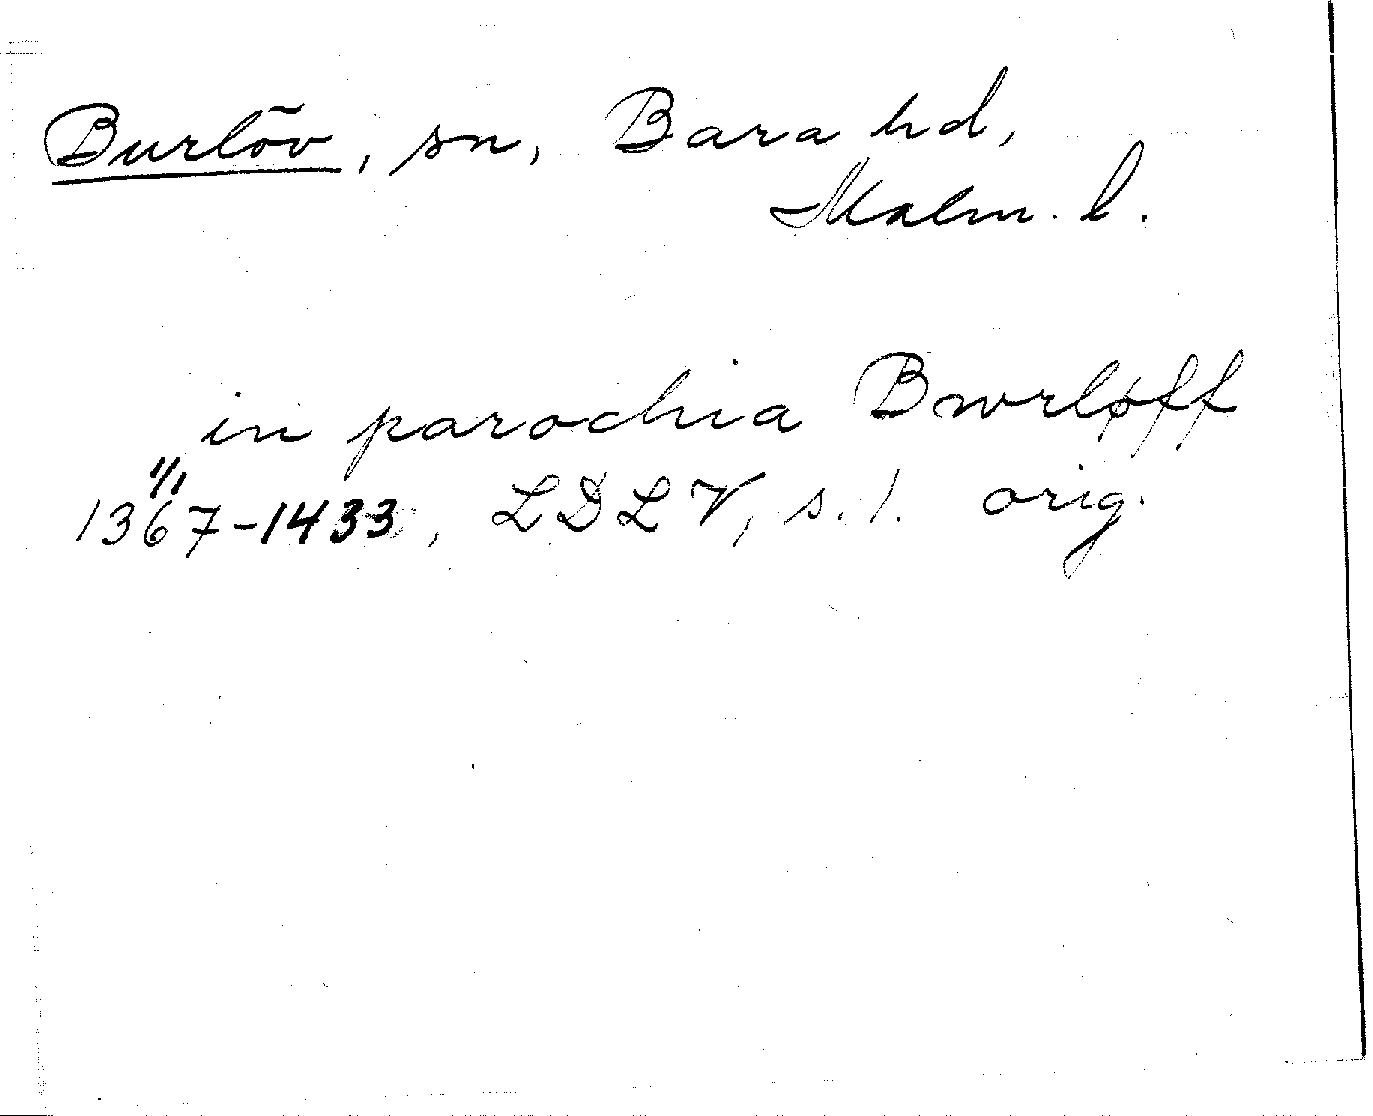 Burlöv, sn, Bara hd,
Malm. l.
in parochia Bwrløff
1/1
1367-1433, LDLV, s. 1. orig.